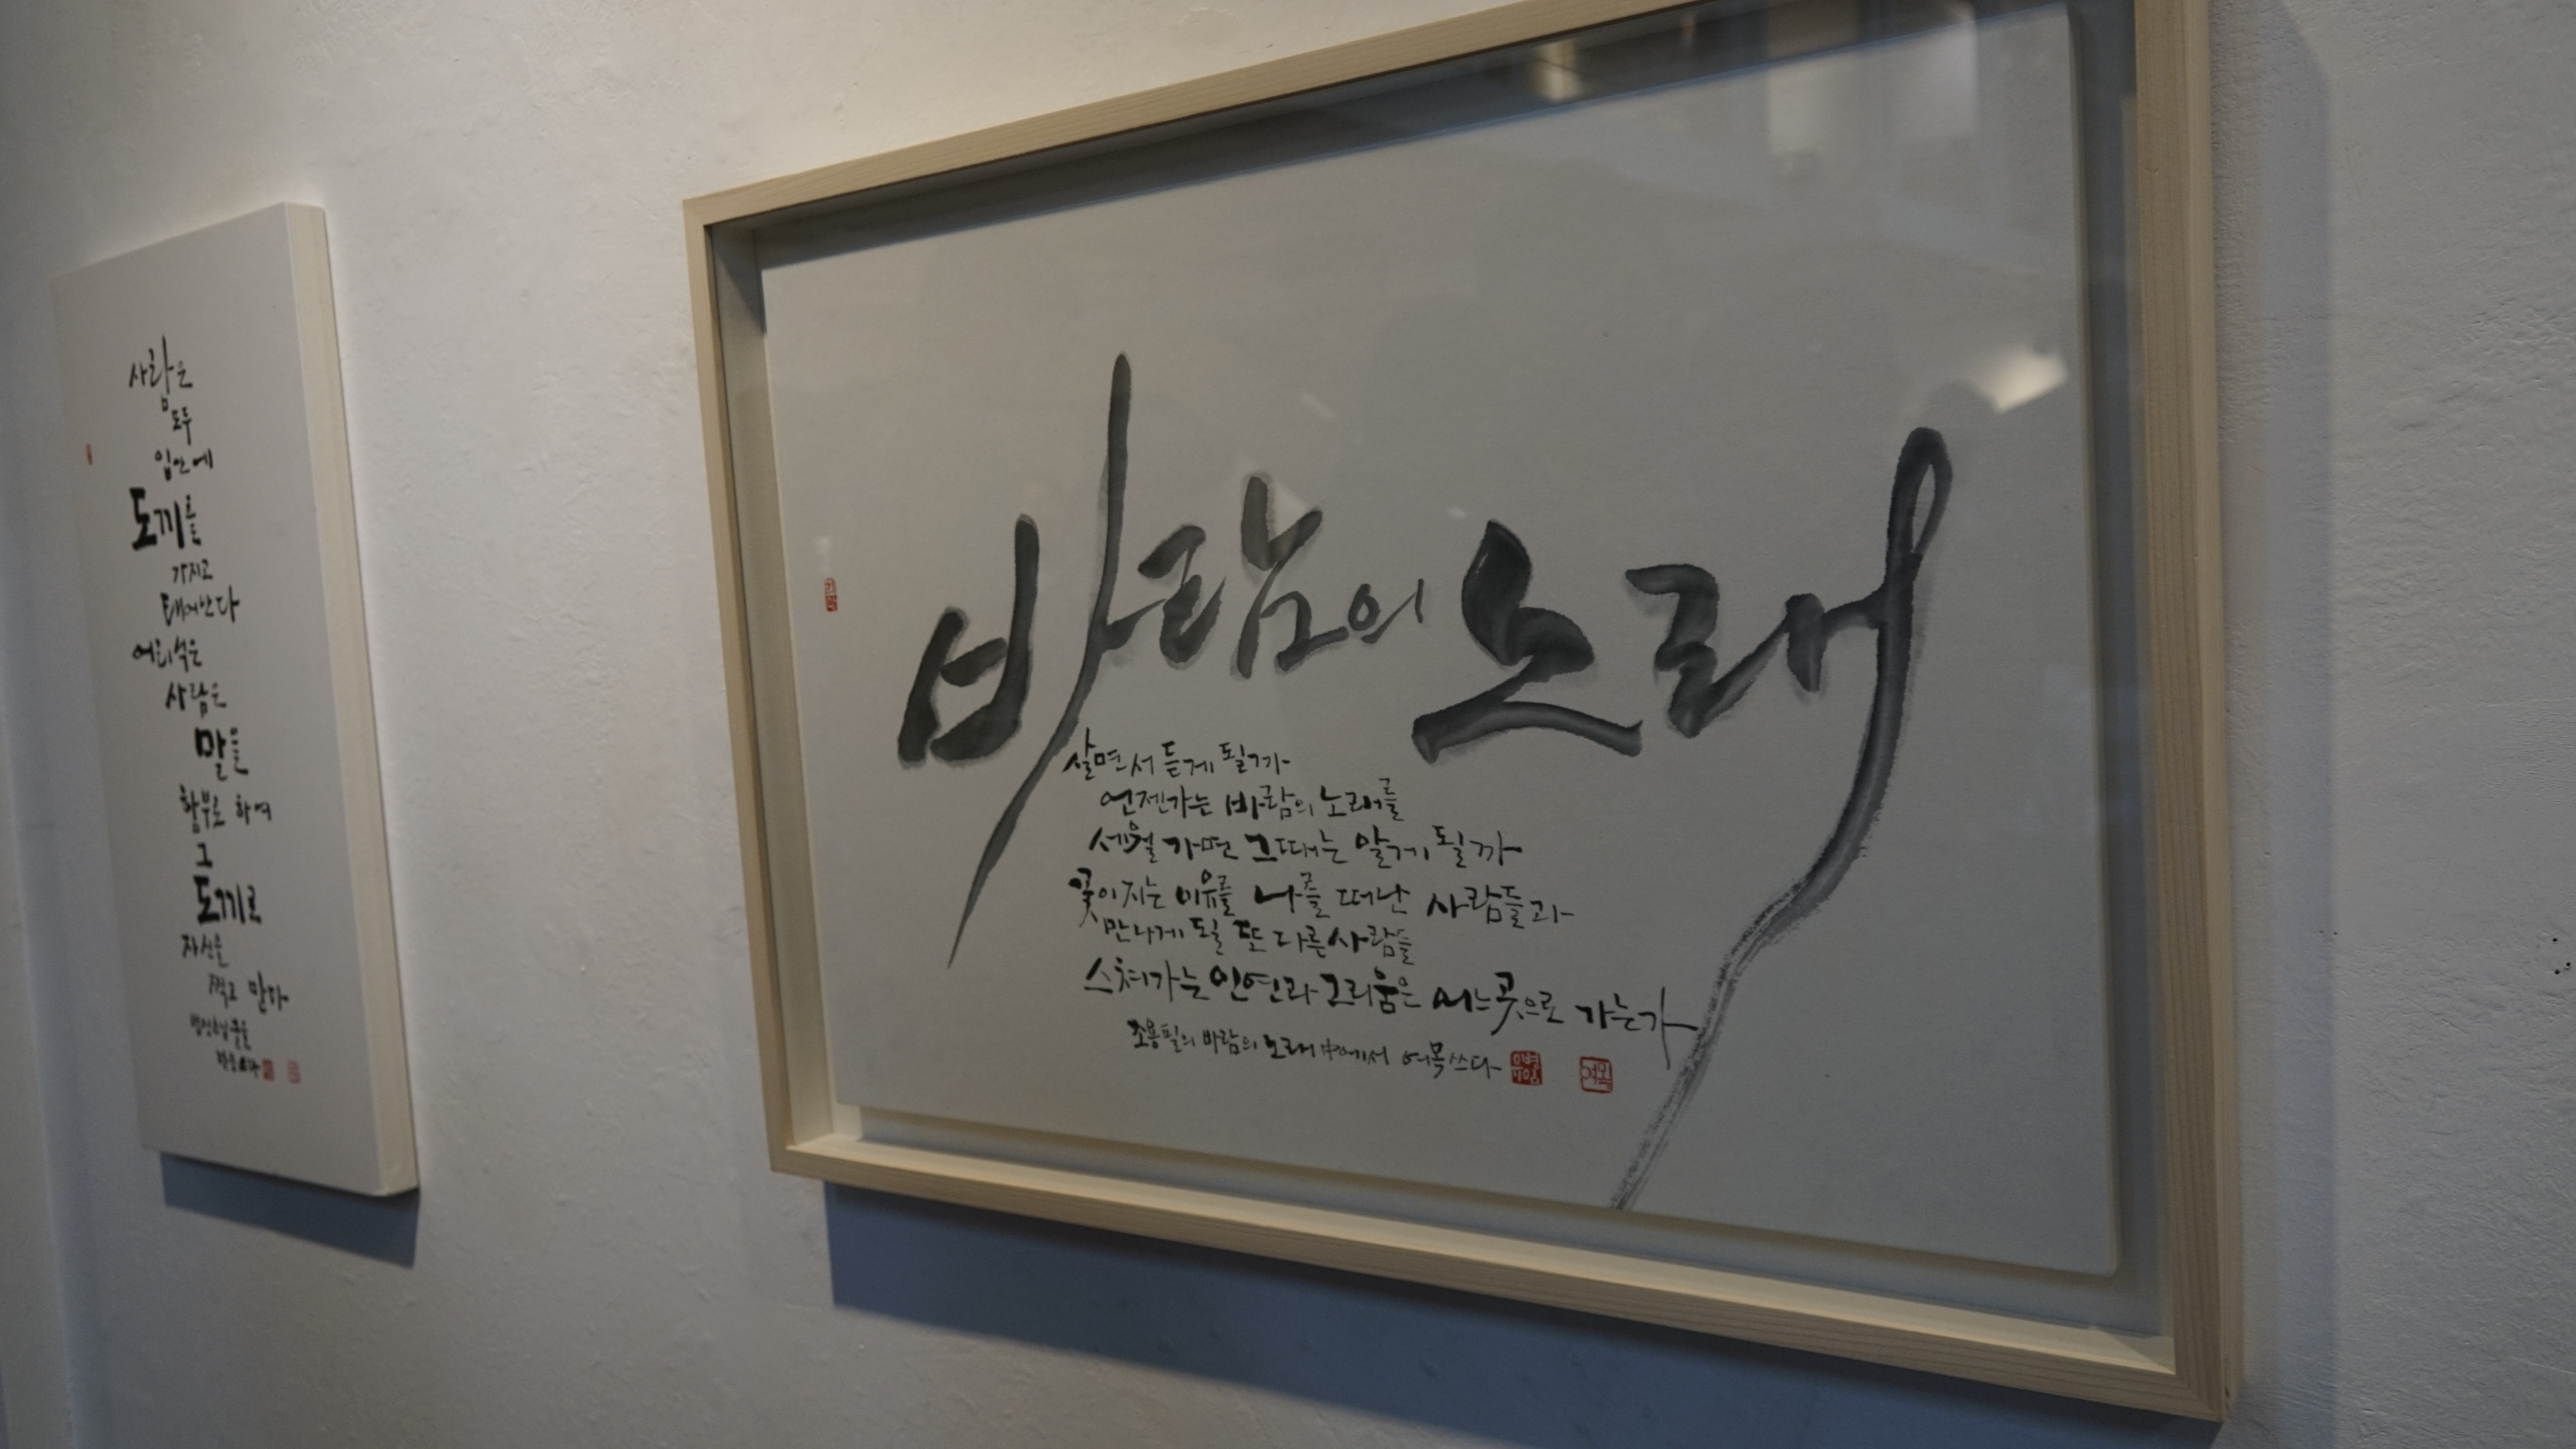 사람은
모두
입안에
도끼를
가지고
태어난다
어리석은
사람은
말을
함부로 하여
그
도끼로
자신을
찍고 만다
법정스님 글을
바람의 노래
살면서 듣게 될까
언젠가는 바람의 노래를
세월 가면 그때는 알게 될까
꽃이 지는 이유를 나를 떠난 사람들과
만나게 될 또 다른 사람들
스쳐가는 인연과 그리움은 어느 곳으로 가는가
조용필의 바람의 노래 中에서 여목 쓰다
여목